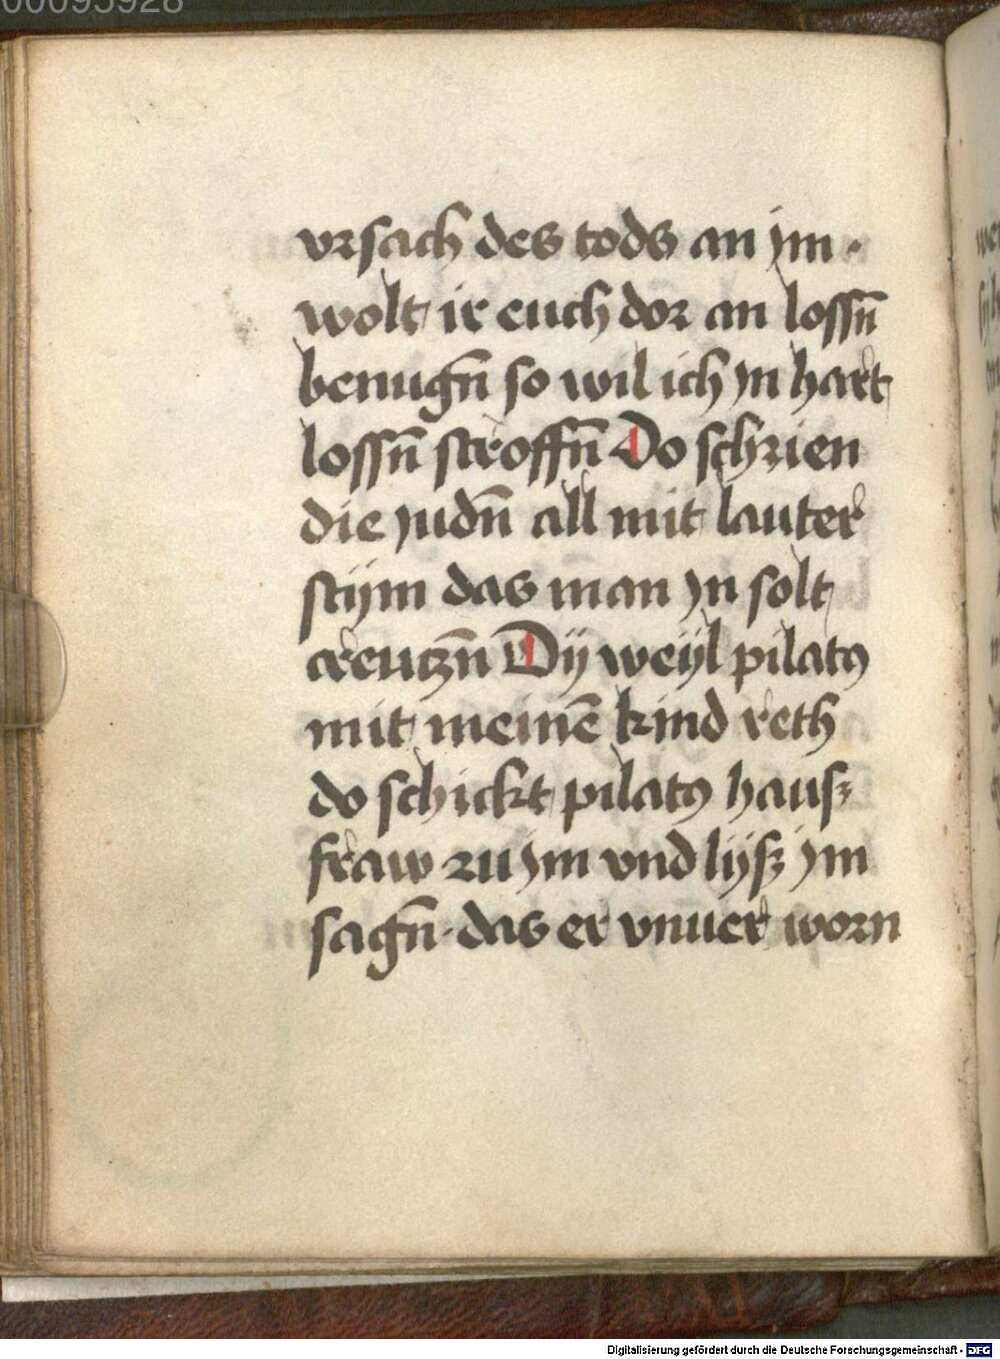 00095928
vrsach des tods an jm ·
wolt ir euch dor an lossn̄
benugn̄ so wil ich jn hart
lossn̄ stroffn̄ Do schrien
die judn̄ all mit lauter
stijm das man jn solt
creutzn̄ Dij weijl pilatꝯ
mit meinē kind reth
do schickt pilatꝯ hausz
fraw zu jm vnd lijsz jm
sagn̄ · das er vnuer worn
Digitalisierung gefördert durch die Deutsche Forschungsgemeinschaft - DFG